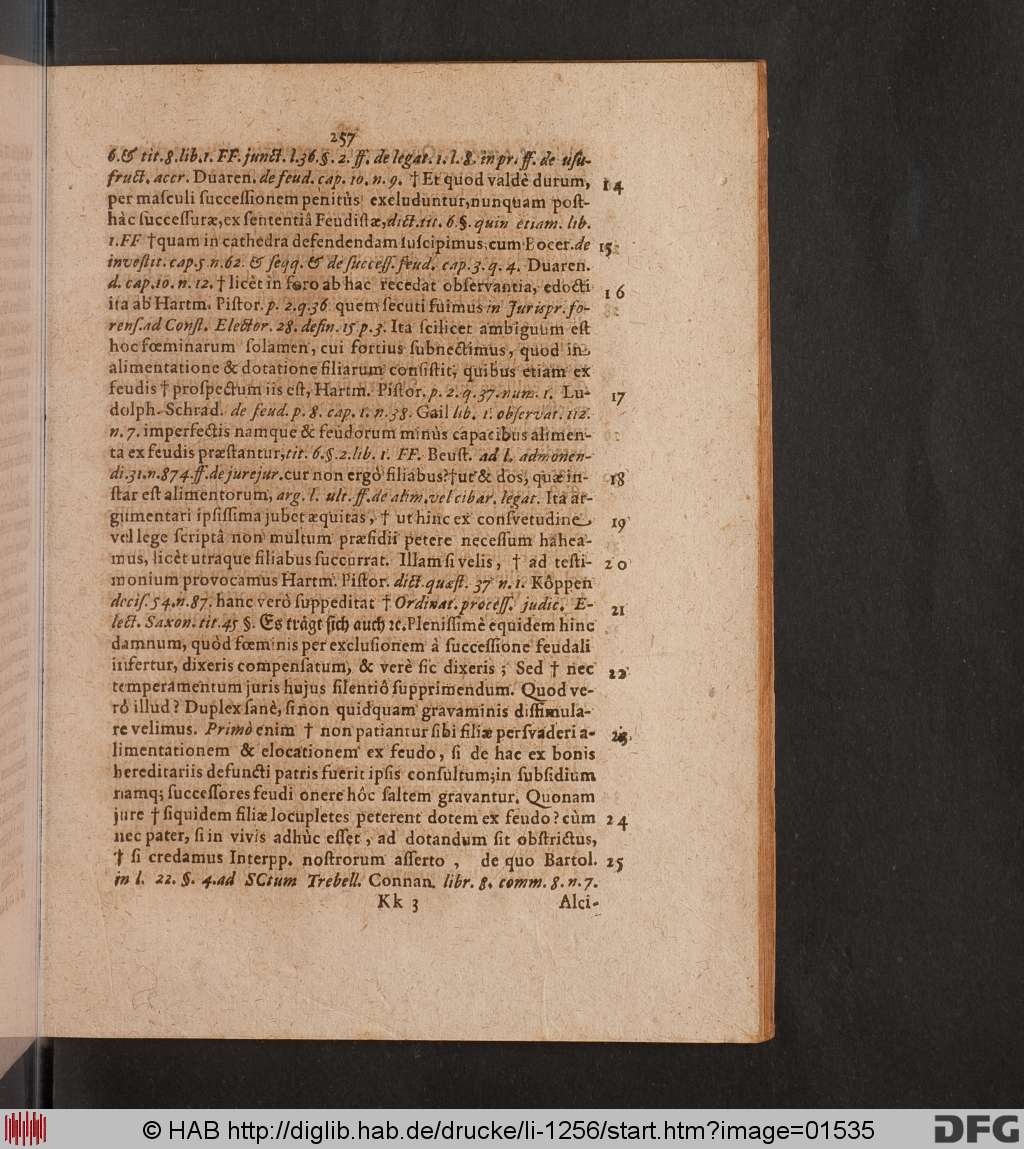 257
6. & tit. 8. lib. 1. FF. junct. l. 36. §. 2. ff. de legat. 1. l. 8. in pr. ff. de usu-
fruct. accr. Duaren. de feud. cap. 10. n. 9. † Et quod valdè durum, 14
per masculi successionem penitùs excluduntur, nunquam post-
hàc successuræ, ex sententiâ Feudistæ, dict. tit. 6. §. quin etiam. lib.
1. FF † quam in cathedra defendendam suscipimus, cum Bocer. de 15
investit. cap. 5. n. 62. & seqq. & de success. feud. cap. 3. q. 4. Duaren.
d. cap. 10. n. 12. † licèt in foro ab hac recedat observantia, edocti 16
ita ab Hartm. Pistor. p. 2. q. 36 quem secuti fuimus in Jurispr. fo-
rens. ad Const. Elector. 28. defin. 15 p. 3. Ita scilicet ambiguum est
hoc fœminarum solamen, cui fortius subnectimus, quod in
alimentatione & dotatione filiarum consistit, quibus etiam ex
feudis † prospectum iis est, Hartm. Pistor. p. 2. q. 37. num. 1. Lu- 17
dolph. Schrad. de feud. p. 8. cap. 1. n. 38. Gail lib. 1. observat. 112.
n. 7. imperfectis namque & feudorum minùs capacibus alimen-
ta ex feudis præstantur, tit. 6. §. 2. lib. 1. FF. Beust. ad l. admonen-
di. 31. n. 874. ff. de jurejur. cur non ergò filiabus? † ut & dos, quæ in- 18
star est alimentorum, arg. l. ult. ff. de alim. vel cibar. legat. Ita ar-
gumentari ipsissima jubet æquitas, † ut hinc ex consvetudine 19
vel lege scriptâ non multum præsidii petere necessum habea-
mus, licèt utraque filiabus succurrat. Illam si velis, † ad testi- 20
monium provocamus Hartm. Pistor. dict. quæst. 37 n. 1. Kôppen
decis. 54. n. 87. hanc verò suppeditat † Ordinat. process. judic. E- 21
lect. Saxon. tit. 45 §. Es trågt sich auch ꝛc. Plenissimè equidem hinc
damnum, quòd fœminis per exclusionem à successione feudali
infertur, dixeris compensatum, & verè sic dixeris; Sed † nec 22
temperamentum juris hujus silentiô supprimendum. Quod ve-
rò illud? Duplex sanè, si non quidquam gravaminis dissimula-
re velimus. Primò enim † non patiantur sibi filiæ persvaderi a- 23
limentationem & elocationem ex feudo, si de hac ex bonis
hereditariis defuncti patris fuerit ipsis consultum; in subsidium
namq; successores feudi onere hôc saltem gravantur. Quonam
jure † siquidem filiæ locupletes peterent dotem ex feudo? cùm 24
nec pater, si in vivis adhùc esset, ad dotandum sit obstrictus,
† si credamus Interpp. nostrorum asserto, de quo Bartol. 25
in l. 22. §. 4. ad SCtum Trebell. Connan. libr. 8. comm. 8. n. 7.
Kk 3 Alci-
© HAB http://diglib.hab.de/drucke/li-1256/start.htm?image=01535
DFG